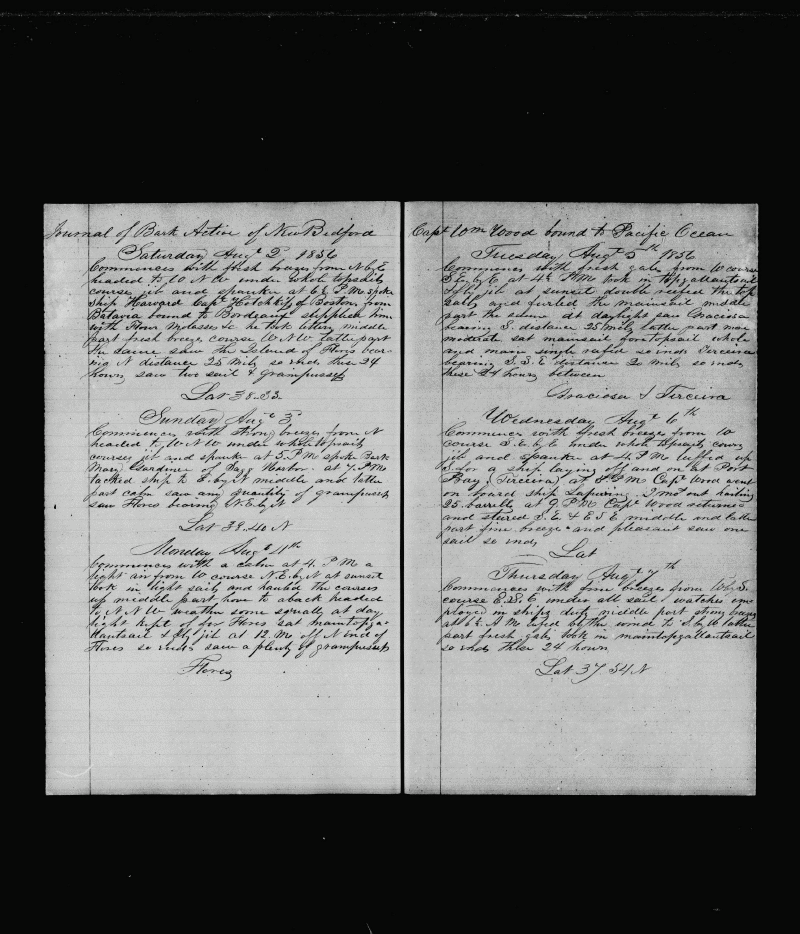 Journal of Bark Active of New Bedford
Saturday Augt 2d 1856
Commences with fresh brezes from N by E
headed to W N W under whole topsails
courses jib and spanker at 6½ P.M. spoke
Ship Harward Capt Hotchkiss of Boston from
Batavia bound to Bordeaux supplied him
with Flour Molasses &c he took letters middle
part fresh breeze course W N W latter part
the same saw the Island of Flores bear
ing N distance 25 Mils so ends these 24
hours saw two sail & Grampusses
Lat 38-23
Sunday Augt 3d
Commences with strong brezes from N
headed to W N W under whole topsails
courses jib and spanker at 5. P.M. spoke Bark
Mary Gardiner of Sagg Harbor. at 7. P.M.
tacked ship to E. by N middle and latter
part calm saw any quantity of grampusses
saw Flores bearing N.E. by N
Lat 38.40 N
Monday Augt 4th
Commences with a calm at 4. P M a
light air from W course N.E. by N at sunset
took in light sails and hauled the courses
up middle part hove to aback headed
to N.N.W. weather some squally at day
light kept of for Flores sat maintopga
llantsail & fly jib at 12. M. off N end of
Flores so ends saw a plenty of grampusses
Flores
Capt Wm Wood bound to Pacific Ocean
Tuesday Augt 5th 1856
Commences with fresh gales from W course
S E by E at 4½ P.M. took in topgallantsails
& fly jib at sunset double reefed the top
sails and furled the mainsail middle
part the same at daylight saw Graciosa
bearing S. distance 25 Mils latter part more
moderate sat mainsail foretopsail whole
and main single reefed so ends Terceira
bearing S.S.E distance 20 mils so ends
these 24 hours between
Graciosa & Terceira
Wednesday Augt 6th
Commences with fresh brezes from W
course S.E. by E under whole topsails courses
jib and spanker at 4 P M luffed up
S. for a ship laying off and on at Port
Bay, (Terceira) at 5 P M Capt Wood went
on board ship
25 barrells at 9 P.M. Capt Wood returned
and steered S.E. & E S E middle and latter
part fine breeze and pleasant saw one
sail so ends
Lat
Thursday Augt 7th
Commences with fine brezes from W by S.
course E.S.E under all sail watches em
ployed in ships duty middle part strong brezes
at 1½ A M the wind to S. by W latter
part fresh gales took in maintopgallantsail
so ends these 24 hours
Lat 37 54 N